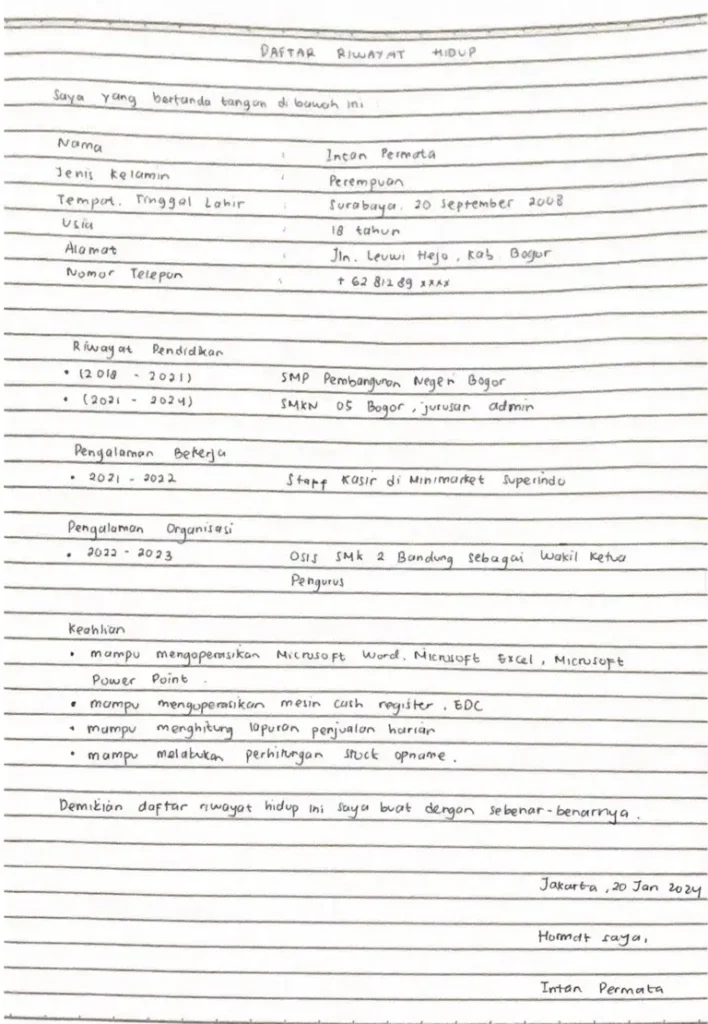 DAFTAR RIWAYAT HIDUP
Saya yang bertanda tangan di bawah ini
Nama : Intan Permata
Jenis Kelamin : Perempuan
Tempat, Tinggal Lahir : Surabaya. 20 September 2008
Usia : 18 tahun
Alamat : Jln. Leuwi Hejo, Kab Bogor
Nomor Telepon : + 62 812 89 xxxx
Riwayat Pendidikan
• (2018 - 2021) SMP Pembangunan Negeri Bogor
• (2021 - 2024) SMKN 05 Bogor, jurusan admin
Pengalaman Bekerja
• 2021 - 2022 Staff Kasir di Minimarket Superindo
Pengalaman Organisasi
• 2022 - 2023 OSIS SMK 2 Bandung sebagai Wakil Ketua
Pengurus
Keahlian
• mampu mengoperasikan Microsoft Word, Microsoft Excel, Microsoft
Power Point.
• mampu mengoperasikan mesin cash register, EDC
• mampu menghitung laporan penjualan harian
• mampu melakukan perhitungan stock opname.
Demikian daftar riwayat hidup ini saya buat dengan sebenar-benarnya.
Jakarta, 20 Jan 2024
Hormat saya,
Intan Permata